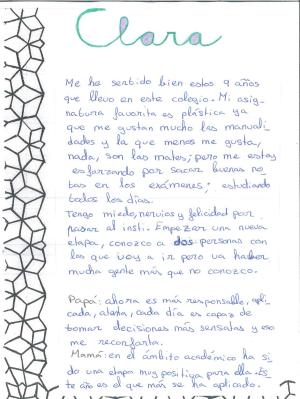 Clara
Me he sentido bien estos 9 años
que llevo en este colegio. Mi asig-
natura favorita es plástica ya
que me gustan mucho las manuali-
dades y la que menos me gusta,
nada, son las mates; pero me estoy
esforzando por sacar buenas no-
tas en los exámenes; estudiando
todos los días.
Tengo miedo, nervios y felicidad por
pasar al insti. Empezar una nueva
etapa, conozco a dos personas con
las que voy a ir pero va haber
mucha gente más que no conozco.
Papá: ahora es más responsable, apli-
cada, atenta, cada día es capaz de
tomar decisiones más sensatas y eso
me reconforta.
Mamá: en el ámbito académico ha si-
do una etapa muy positiva para ella. Es-
te año es el que más se ha aplicado.